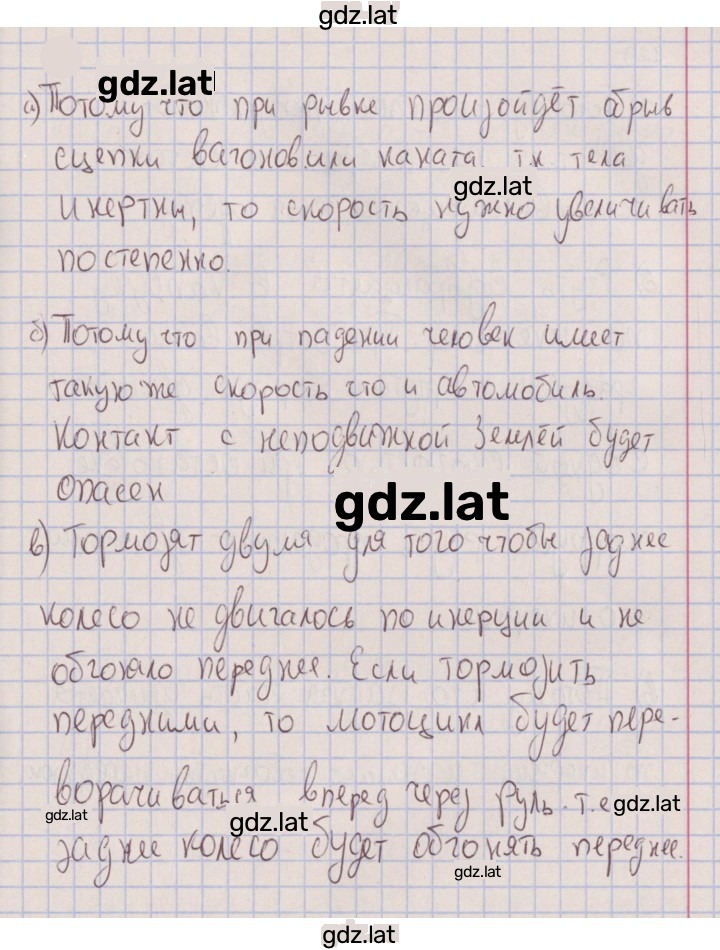 gdz.lat
gdz.lat
а) Потому что при рывке произойдёт обрыв
сцепки вагонов или каната. т.к тела
gdz.lat
инертны, то скорость нужно увеличивать
постепенно.
б) Потому что при падении человек имеет
такую же скорость что и автомобиль.
Контакт с неподвижной Землёй будет
опасен
gdz.lat
в) Тормозят двумя для того чтобы заднее
колесо не двигалось по инерции и не
обгоняло переднее. Если тормозить
передними, то мотоцикл будет пере-
ворачиваться вперед через руль. т.е
gdz.lat
gdz.lat
gdz.lat
заднее колесо будет обгонять переднее.
gdz.lat
gdz.lat